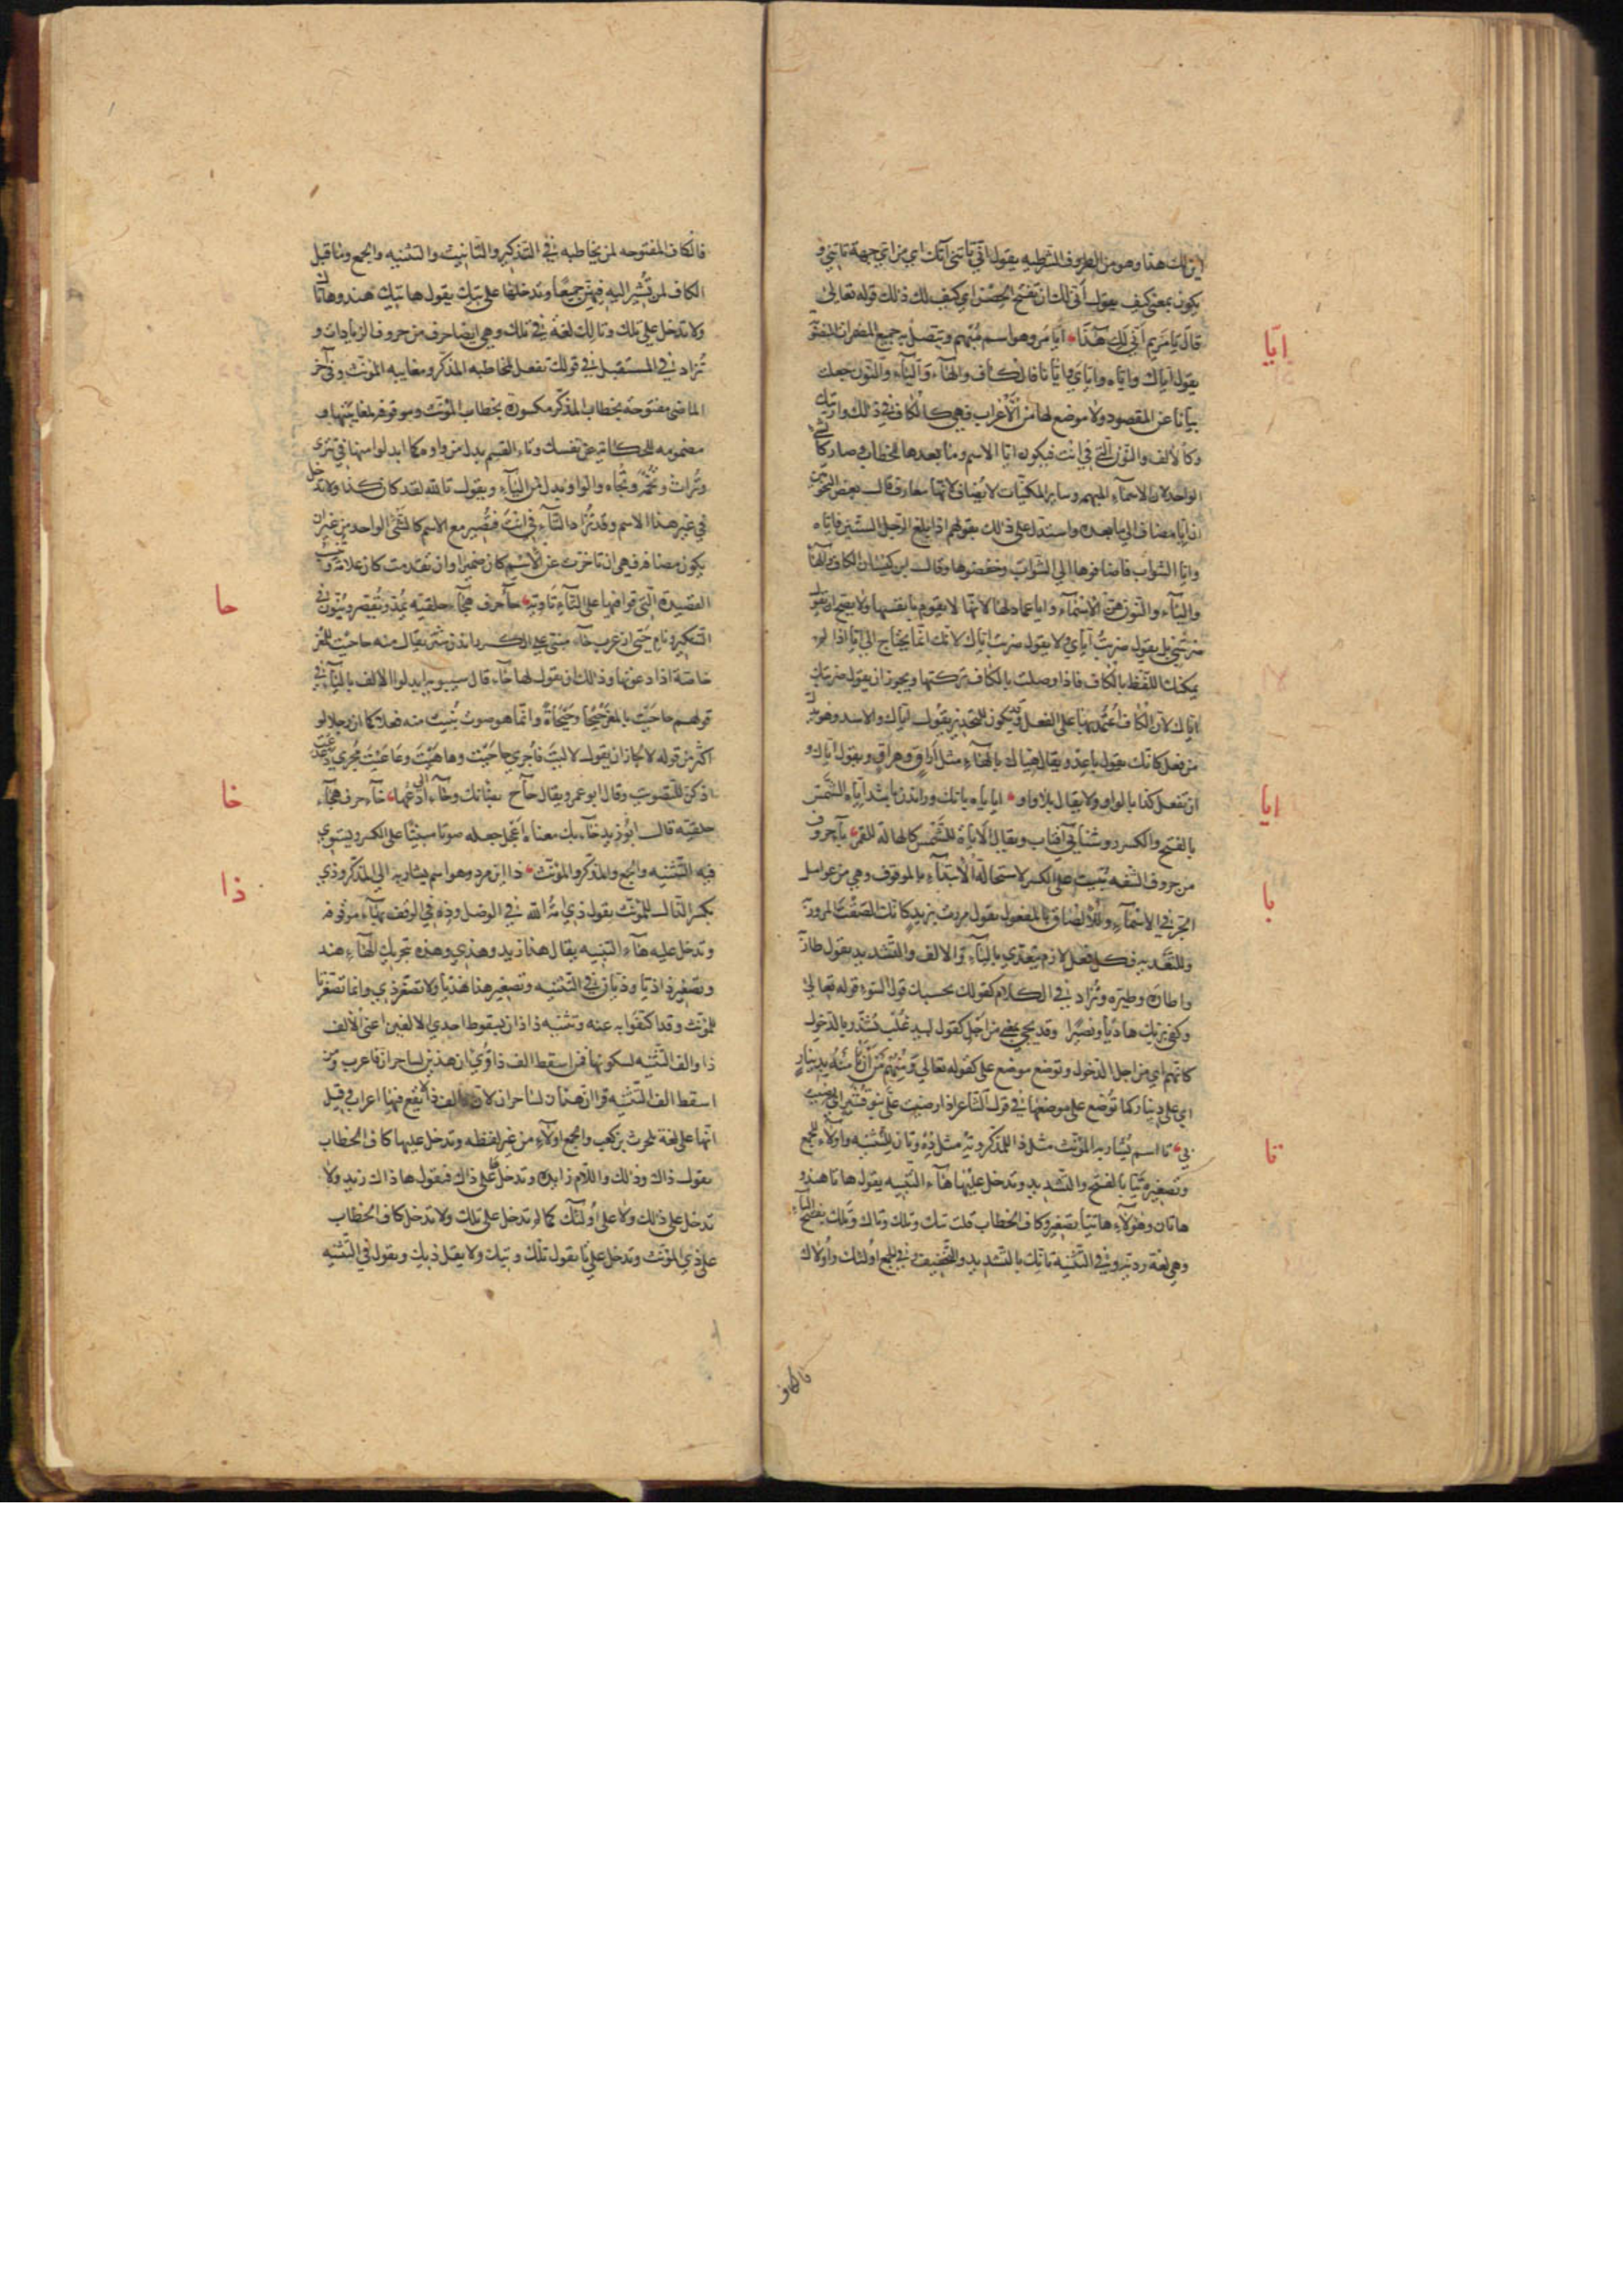 اين لك هذا وهو من الظروف الشرطيه يقول انّي تأتني آتك اي من اي جهة تاتني و
يكون بمعنى كيف يقول أنّى لك ان تفتح الحصن اي كيف لك ذلك قوله تعالى
قال يا مريم أنى لك هذا ايّا مر وهو اسم مبهم ويتصل به جميع المضمرات المنصو
يقول اياك واياه واياي وايانا فالكاف والهآء واليآء والنون جعلت
بيانا عن المقصود ولا موضع لها من الأعراب فهي كالكاف في ذلك وارايتك
وكالالف والنون التي في انت فيكون ايا الاسم وما بعدها للخطاب وصار كالشي
الواحد لان الاسمآء المبهمه وساير المكنيات لا يضاف لانها معارف قال بعض النحويين
ان ايا مضاف الى ما بعده واستدل على ذلك بقولهم اذا بلغ الرجل الستين فاياه
وايا الشواب فاضافوها الى الشواب وخفضوها وقال ابن كيسان الكاف والهآ
واليآء والنون هي الأسمآء وايا عماد لها لانها لا يقوم بانفسها
ضربتني بل يقول ضربت اياي ولا يقول ضربت اياك لانك انما يحتاج الى ايا اذا لم
يمكنك اللفظ بالكاف فاذا وصلت بالكاف تركتها ويجوز ان يقول ضربتك
اياك لان الكاف اعتمد بها على الفعل قد يكون للتحذير يقول اياك والاسد وهو بدل
من فعل كانك يقول باعد ويقال هياك بالهآء مثل أراق وهراق ويقول اياك و
ان تفعل كذا بالواو ولا يقال بلا واو ايا
بالفتح والكسر روشنايي آفتاب ويقال الاياة للشمس كالهالة للقمر بآ حروف
من حروف الشفه بنيت على الكسر لاستحالة الأبتدآء بالموقوف وهي من عوامل
الجر في الاسمآء وللألصاق بالمفعول يقول مررت بزيد كانك الصقت المرور به
وللتعديه فكل فعل لازم يتعدى باليآء والالف والتشديد يقول طار به
واطاره وطيره وتزاد في الكلام كقولك بحسبك قول السوء قوله تعالى
وكفى بربك هاديا ونصيرا وقد يجي بمعنى من اجل كقول لبيد غلب تشذر بالذحول
كانهم اي من اجل الذحول وتوضع موضع على كقوله تعالى ومنهم من ان تامنه بدينار
اي على دينار كما توضع على موضعها في قول الشاعر اذا رضيت علي بنو قشير اي رضيت
بي تا اسم يشار به المؤنث مثل ذا للمذكر وته مثل ذه وتان للتثنيه واولآء للجمع
وتصغيره تيا بالفتح والتشديد وتدخل عليها هآء التنبيه يقول هاتا هند و
هاتان وهؤلآء هاتيا تصغير وكاف الخطاب قلت تيك وتلك وتاك وتلك بفتح التآء
وهي لغة رديه وفي التثنيه تانك بالتشديد والتخفيف وفي الجمع اولئك واولاك
فالكاف
ايا
ايا
با
تا
فالكاف المفتوحه لمن يخاطبه في التذكير والتانيث والتثنيه والجمع وما قبل
الكاف لمن تشير اليه فهي جميعا وتدخلها على تيك يقول هاتيك هند وهاتا لك
ولا تدخل على تلك وتالك لغة في تلك وهي ايضا حرف من حروف الزيادات و
تزاد في المستقبل في قولك تفعل للمخاطبه المذكر ومغايبه المؤنث وفي آخر
الماضي مفتوحه بخطاب المذكر مكسوره بخطاب المؤنث وموقوفه لمغايبتها و
مضمومه للحكايه عن نفسك وتاء القسم بدل من واوه كما ابدلوا منها في تترى
وتراث وتخمه وتجاه والواو بدل من اليآء ويقول تالله لقد كان كذا ولا تدخل
في غير هذا الاسم وقد تزاد التآء في انت فتصير مع الاسم كالشي الواحد من غير ان
يكون مضافه فهي ان تاخرت عن الاسم كان ضميرا وان تقدمت كان علامة
القصيدة التي قوافيها على التآء تاويه حآ حرف هجآء حلقيه يمد ويقصر وينون في
التنكير ونام
خاصة اذا دعوتها وذلك ان يقول لها حآء قال سيبويه ابدلوا الالف باليآء في
قولهم حاحيت بالمعز حيحا وحيحاة وانما هو صوت بنيت منه فعلا كما ان رجلا لو
اكثر من قوله لا لجاز ان يقول لا ليت فاجري حاحيت وهاهيت وعاعيت مجرى
اذ كن للتصويت وقال ابو عمرو يقال حآح بضانك وحآء اي ادعها خآء حرف هجآء
حلقيه قال ابو زيد خآء بك معناه اعجل جعله صوتا مبنيا على الكسر ويستوي
فيه التثنيه والجمع والمذكر والمؤنث ذا اين مرد وهو اسم يشار به الى المذكر وذي
بكسر الذال للمؤنث يقول ذي امة الله في الوصل وذه في الوقف بهآء موقوفه
وتدخل عليه هآء التنبيه يقال هذا زيد وهذي وهذه بتحريك الهآء هند
وتصغير ذا ذيا وذيان في التثنيه وتصغير هذا هذيا ولا تصغر ذي وانما تصغر تا
للمؤنث وقد اكتفوا به عنه وتثنيه ذا ذان بسقوط احدي الالفين اعني الألف
ذا والف التثنيه لسكونها فمن اسقط الف ذا قرئ ان هذين لساحران فاعرب ومن
اسقط الف التثنيه قرا ان هذان لساحران لان الف ذا لا يقع فيها اعراب وقيل
انها على لغة بلحرث بن كعب والجمع اولآء من غير لفظه وتدخل عليها كاف الخطاب
يقول ذاك وذلك واللام زايده وتدخل ها على ذاك فيقول ها ذاك زيد ولا
تدخل على ذلك ولا على أولئك كما لم تدخل على تلك ولا تدخل كاف الخطاب
على ذي المؤنث وتدخل على تا يقول تلك وتيك ولا يقل ذيك ويقول في التثنيه
حا
خا
ذا